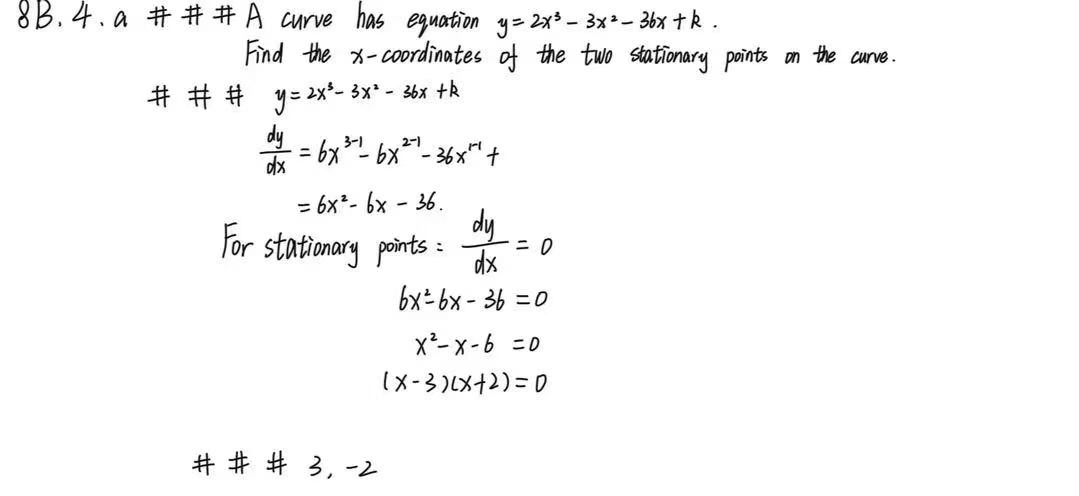 8B. 4. a # # # A curve has equation y = 2x³ - 3x² - 36x + k .
Find the x-coordinates of the two stationary points on the curve.
# # # y = 2x³ - 3x² - 36x + k
dy/dx = 6x³⁻¹ - 6x²⁻¹ - 36x¹⁻¹ +
= 6x² - 6x - 36.
For stationary points : dy/dx = 0
6x² - 6x - 36 = 0
x² - x - 6 = 0
(x - 3)(x + 2) = 0
# # # 3, -2